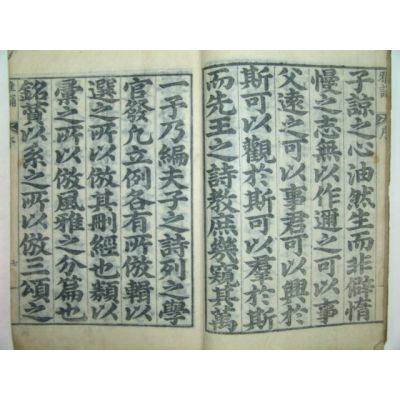 雅誦 序
子諒之心油然生而非僻惰
慢之志無以作邇之可以事
父遠之可以事君可以興於
斯可以觀於斯可以羣於斯
而先王之詩教庶幾窺其萬
一予乃編夫子之詩列之學
官發凡立例各有所倣輯以
選之所以倣其刪經也類以
彙之所以倣風雅之分篇也
銘以系之所以倣三頌之